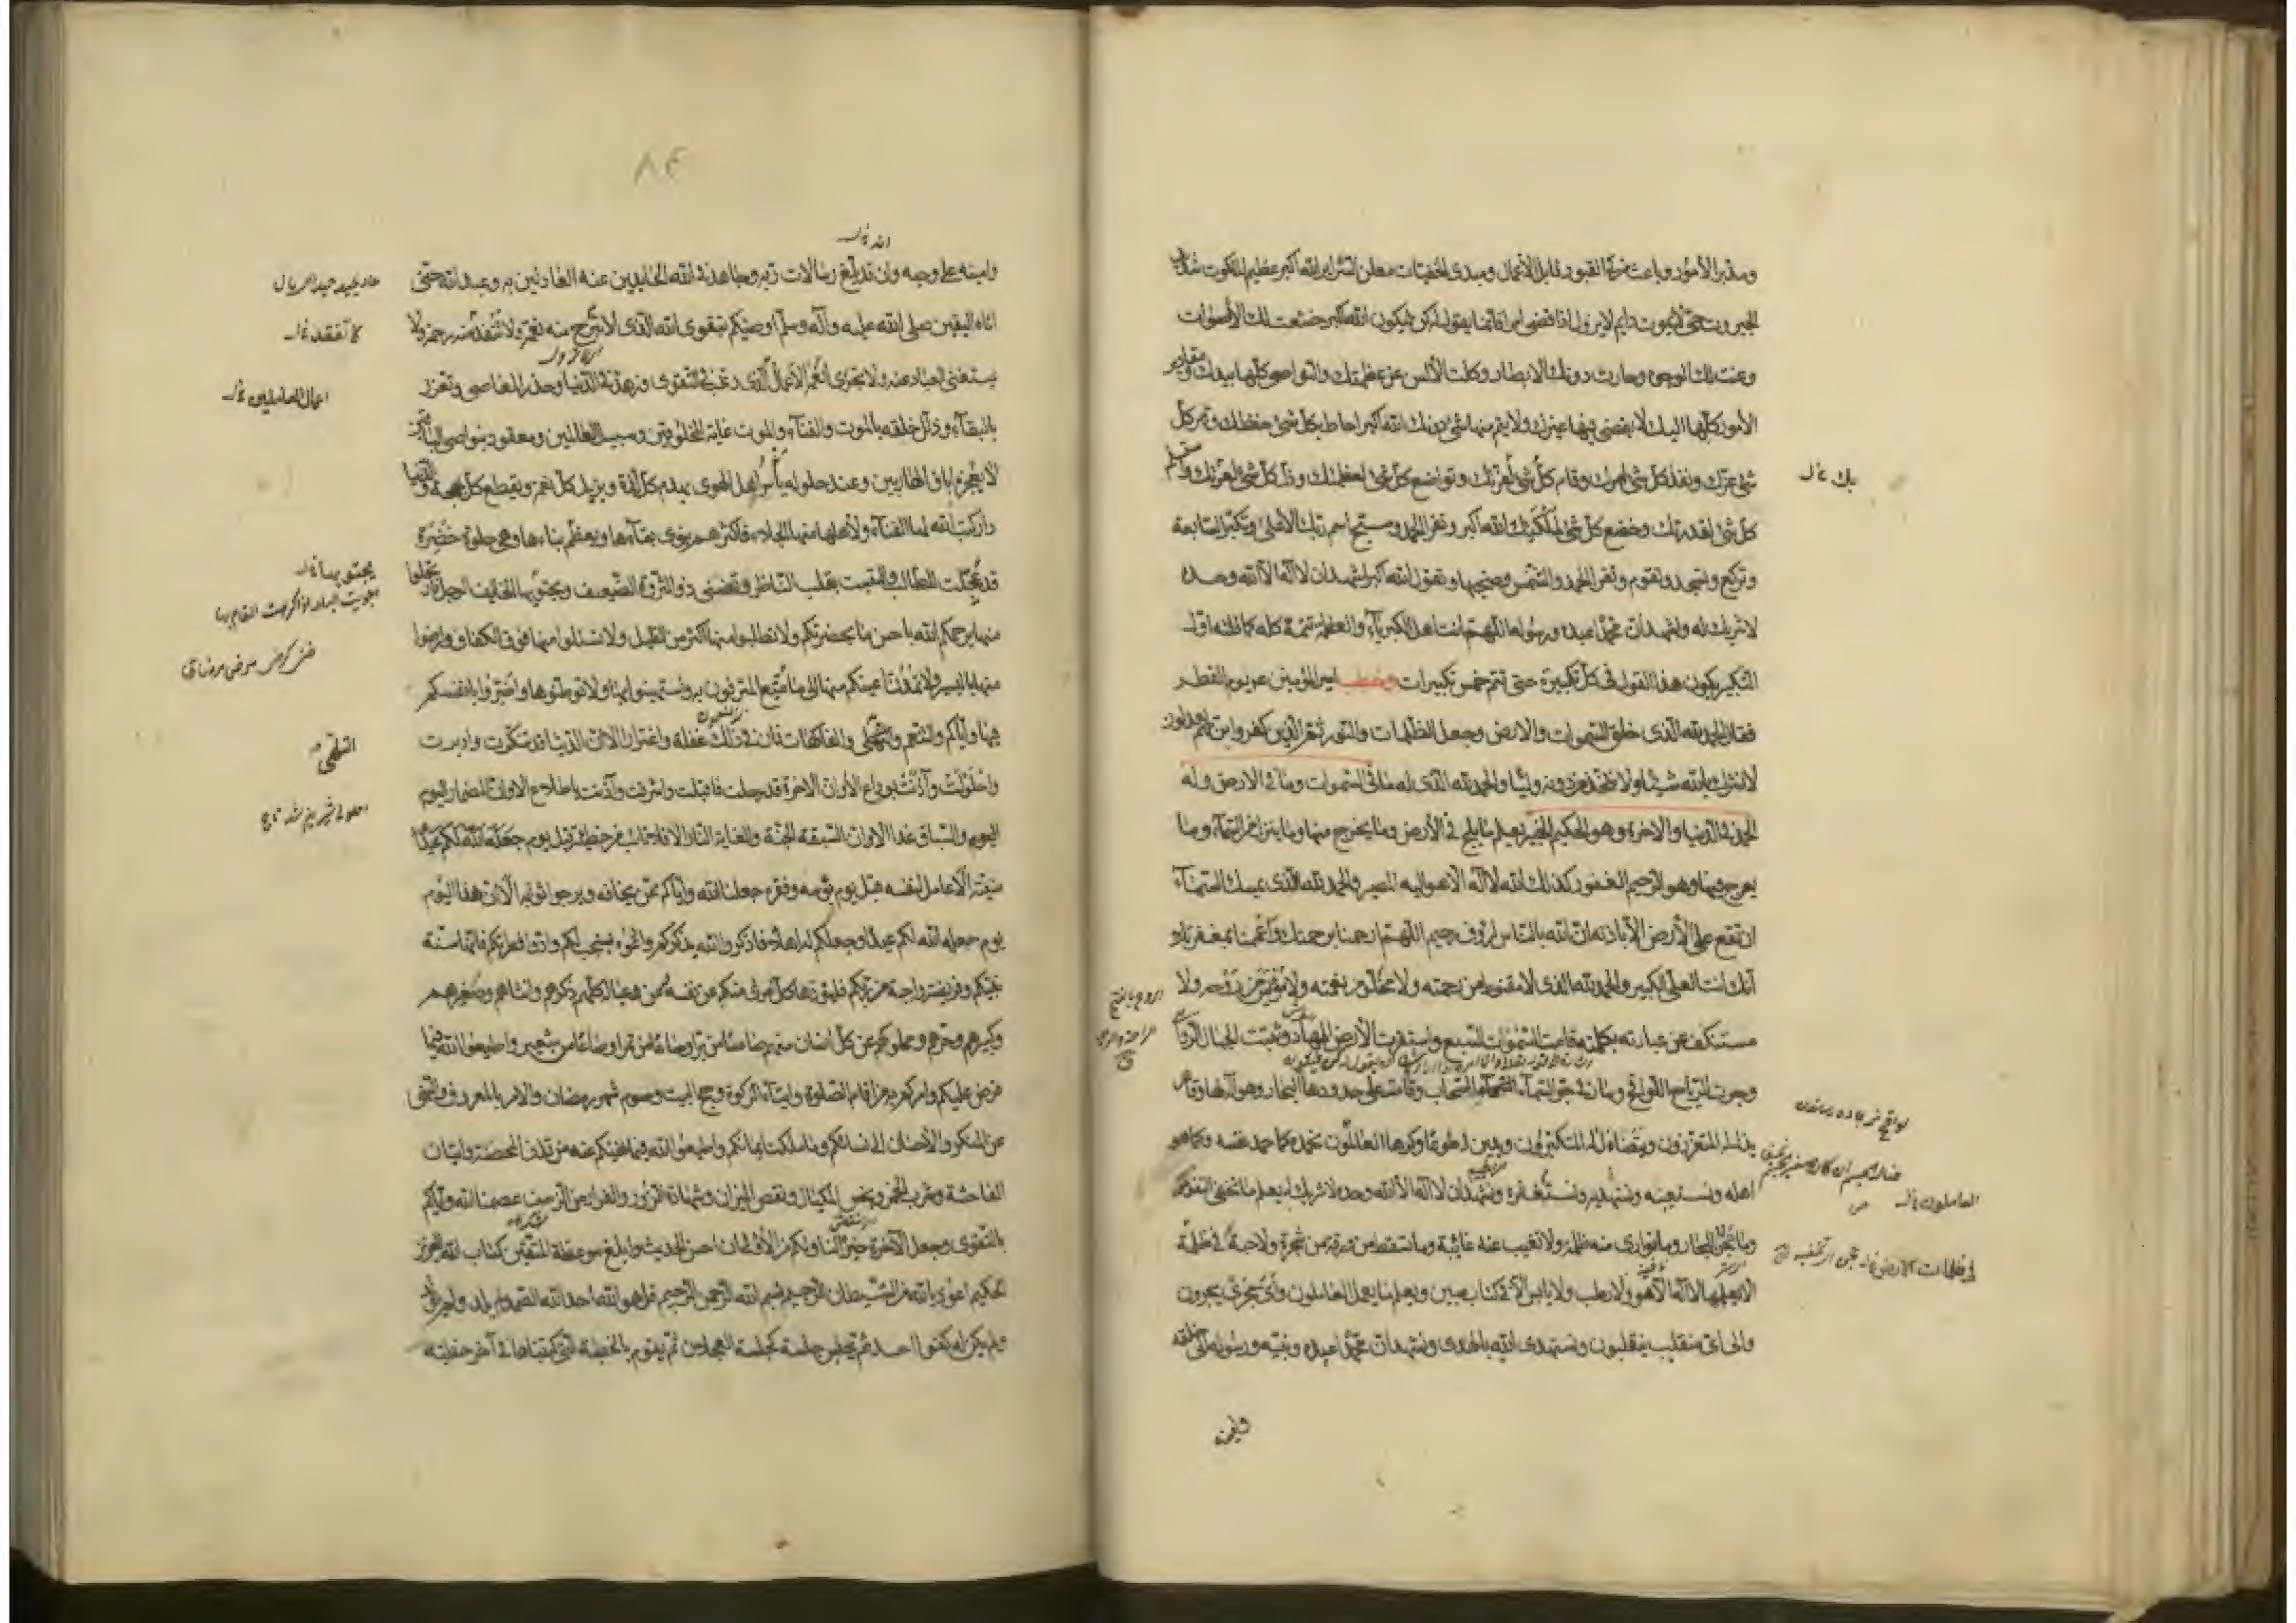 ومدبر الأمور وباعث من في القبور قابل الأعمال ومبدئ الخفيات معلن السرائر الله أكبر عظيم الملكوت شديد
الجبروت حي لا يموت دايم لا يزول اذا قضى امرا فانما يقول له كن فيكون الله أكبر خشعت لك الأصوات
وعنت لك الوجوه وحارت دونك الابصار وكلت الألسن عن عظمتك والنواصي كلها بيدك ومقادير
الأمور كلها اليك لا يقضي فيها غيرك ولا يتم منها شئ دونك الله أكبر احاط بكل شئ حفظك وقهر كل
شئ عزك ونفذ كل شئ امرك وقام كل شئ بك وتواضع كل شئ لعظمتك وذل كل شئ لعزتك واستسلم
كل شئ لقدرتك وخضع كل شئ لملكك الله أكبر وتقرا الحمد وسبح اسم ربك الأعلى وتكبر السابعة
وتركع وتسجد وتقوم وتقرا الحمد والشمس وضحيها وتقول الله أكبر اشهد ان لا اله الا الله وحده
لا شريك له واشهد ان محمدا عبده ورسوله اللهم انت اهل الكبرياء والعظمة تتمه كله كما قلته اول
التكبير يكون هذا القول في كل تكبيرة حتى تتم خمس تكبيرات وخطب امير المؤمنين ع يوم الفطر
فقال الحمد لله الذي خلق السموات والارض وجعل الظلمات والنور ثم الذين كفروا بربهم يعدلون
لا نشرك بالله شيئا ولا نتخذ من دونه وليا والحمد لله الذي له ما في السموات وما في الارض وله
الحمد في الدنيا والاخرة وهو الحكيم الخبير يعلم ما يلج في الأرض وما يخرج منها وما ينزل من السماء وما
يعرج فيها وهو الرحيم الغفور كذلك الله لا اله الا هو اليه المصير والحمد لله الذي يمسك السماء
ان تقع على الأرض الا باذنه ان الله بالناس لرؤف رحيم اللهم ارحمنا برحمتك واعممنا بمغفرتك
انك انت العلي الكبير والحمد لله الذي لا مقنوط من رحمته ولا مخلو من نعمته ولا مؤيس من روحه ولا
مستنكف عن عبادته بكلمته قامت السموات السبع واستقرت الأرض المهاد وثبتت الجبال الرواسي
وجرت الرياح اللواقح وسار في جو السماء السحاب وقامت على حدودها البحار وهو اله لها وقاهر
يذل له المتعززون ويتضاءل له المتكبرون ويدين له طوعا وكرها العالمون نحمده كما حمد نفسه وكما هو
اهله ونستعينه ونستهديه ونستغفره ونشهد ان لا اله الا الله وحده لا شريك له يعلم ما تخفي النفوس
وما تجن البحار وما توارى منه ظلمة ولا تغيب عنه غائبة وما تسقط من ورقة من شجرة ولا حبة في ظلمة
الا يعلمها لا اله الا هو ولا رطب ولا يابس الا في كتاب مبين ويعلم ما يعمل العاملون وأي مجرى يجرون
والى اي منقلب ينقلبون ونستهدي الله بالهدى ونشهد ان محمدا عبده ونبيه ورسوله الى خلقه
وامينه على وحيه وان قد بلغ رسالات ربه وجاهد في الله الحايدين عنه العادلين به وعبد الله حتى
اتاه اليقين صلى الله عليه وآله وسلم اوصيكم بتقوى الله الذي لا تبرح منه نعمة ولا تنفد منه رحمة ولا
يستغني العباد عنه ولا يجزي انعمه الأعمال الذي رغب في التقوى وزهد في الدنيا وحذر المعاصي وتعزز
بالبقاء وذلل خلقه بالموت والفناء والموت غاية المخلوقين وسبيل العالمين ومعقود بنواصي الباقين
لا يعجزه اباق الهاربين وعند حلوله يأسر اهل الهوى يهدم كل لذة ويزيل كل نعم ويقطع كل بهجة والدنيا
دار كتب الله لها الفناء ولأهلها منها الجلاء فاكثرهم ينوي بقاءها ويعظم بناءها وهي حلوة خضرة
قد عجلت للطالب والتبست بقلب الناظر وتضني ذو الثروة الضعيف ويجتويها الخايف الوجل فارتحلوا
منها يرحمكم الله باحسن ما بحضرتكم ولا تطلبوا منها اكثر من القليل ولا تسئلوا منها فوق الكفاف وارضوا
منها باليسير ولا تمدن اعينكم منها الى ما متع المترفون به واستهينوا بها ولا توطنوها واضروا بانفسكم
فيها واياكم والتنعم والتلهي والفاكهات فان في ذلك غفلة واغترارا الا ان الدنيا قد تنكرت وادبرت
واحلولت وآذنت بوداع الا وان الاخرة قد رحلت فاقبلت واشرفت وآذنت باطلاع الا وان المضمار اليوم
اليوم والسباق غدا الا وان السبقة الجنة والغاية النار الا افلا تائب من خطيئته قبل يوم جعله الله لكم عيدا
منيته الا عامل لنفسه قبل يوم بؤسه وفقره جعلنا الله واياكم ممن يخافه ويرجو ثوابه الا ان هذا اليوم
يوم جعله الله لكم عيدا وجعلكم له اهلا فاذكروا الله يذكركم وادعوه يستجب لكم وادوا فطرتكم فانها سنة
نبيكم وفريضة واجبة من ربكم فليؤدها كل امرئ منكم عن نفسه وعن عياله كلهم ذكرهم وانثاهم وصغيرهم
وكبيرهم وحرهم ومملوكهم عن كل انسان منهم صاعا من بر او صاعا من تمر او صاعا من شعير واطيعوا الله فيما
فرض عليكم وامركم به من اقام الصلوة وايتاء الزكوة وحج البيت وصوم شهر رمضان والامر بالمعروف والنهي
عن المنكر والأحسان الى نسائكم وما ملكت ايمانكم واطيعوا الله فيما نهيكم عنه من قذف المحصنة واتيان
الفاحشة وشرب الخمر وبخس المكيال ونقص الميزان وشهادة الزور والفرار من الزحف عصمنا الله واياكم
بالتقوى وجعل الآخرة خيرا لنا ولكم من الأولى ان احسن الحديث وابلغ موعظة المتقين كتاب الله العزيز
الحكيم اعوذ بالله من الشيطان الرجيم بسم الله الرحمن الرحيم قل هو الله احد الله الصمد لم يلد ولم يولد
ولم يكن له كفوا احد ثم تجلس جلسة كجلسة العجلان ثم يقوم بالخطبة التي كتبناها في آخر خطبته